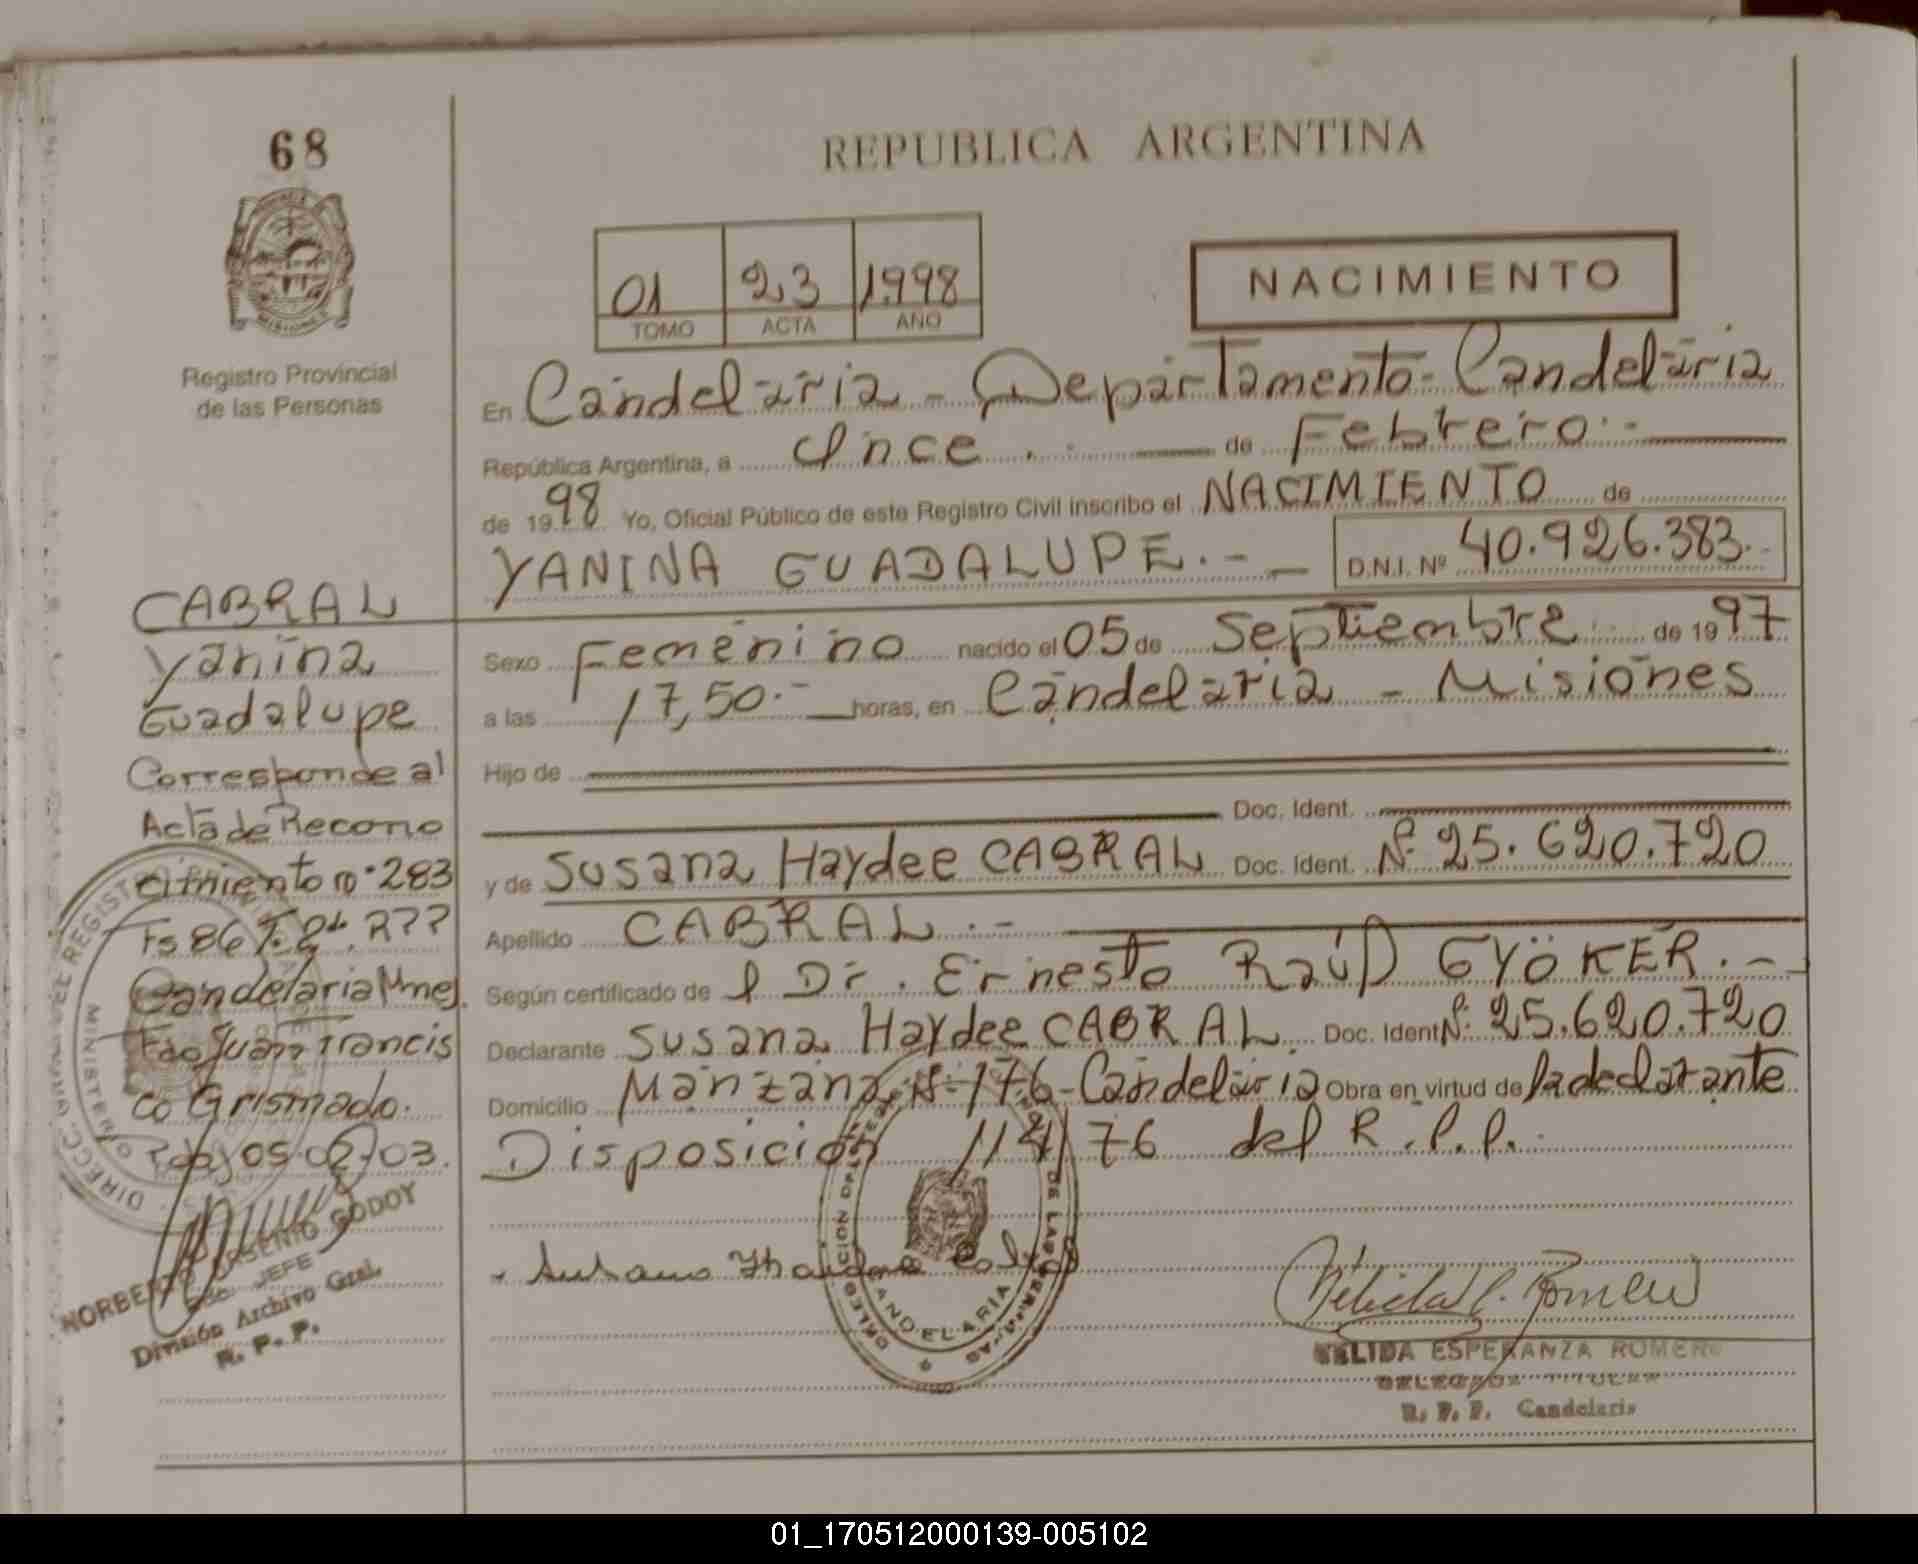 68
REPUBLICA ARGENTINA
01 23 1998
TOMO ACTA AÑO
NACIMIENTO
MISIONES
Registro Provincial
de las Personas
En Candelaria - Departamento - Candelaria
República Argentina, a Once de Febrero.-
de 1998 Yo, Oficial Público de este Registro Civil inscribo el NACIMIENTO de
YANINA GUADALUPE.- D.N.I. Nº 40.926.383.-
Sexo Femenino nacido el 05 de Septiembre de 1997
a las 17,50.- horas, en Candelaria - Misiones
Hijo de
Doc. Ident.
y de Susana Haydee CABRAL Doc. Ident. Nº 25.620.720
Apellido CABRAL.-
Según certificado de l Dr. Ernesto Raúl GYÖKER.-
Declarante Susana Haydee CABRAL. Doc. Ident Nº 25.620.720
Domicilio Manzana Nº 176 - Candelaria Obra en virtud de la declarante
Disposición 114/76 del R.P.P.
CABRAL
Yanina
Guadalupe
Corresponde al
Acta de Recono
cimiento nº 283
Fs 86
Candelaria Mnes.
Fdo Juan Francis
co Grismado.
Pdas 05-02-03.
NORBERTO ARSENIO GODOY
JEFE
División Archivo Gral.
R. P. P.
MINISTERIO
CANDELARIA
DE LAS PERSONAS
Felida E. Romero
FELIDA ESPERANZA ROMERO
DELEGADA TITULAR
R. P. P. Candelaria
01_170512000139-005102